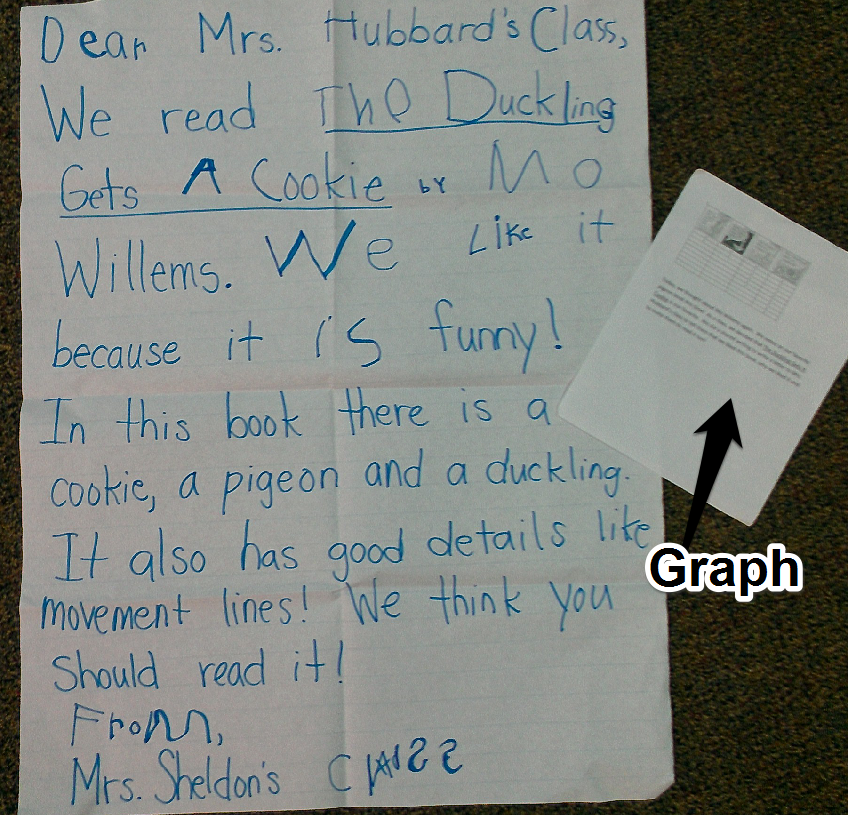 Dear Mrs. Hubbard's Class,
We read The Duckling
Gets A Cookie by Mo
Willems. We Like it
because it is funny!
In this book there is a
cookie, a pigeon and a duckling.
It also has good details like
movement lines! We think you
should read it!
From,
Mrs. Sheldon's Class
Graph